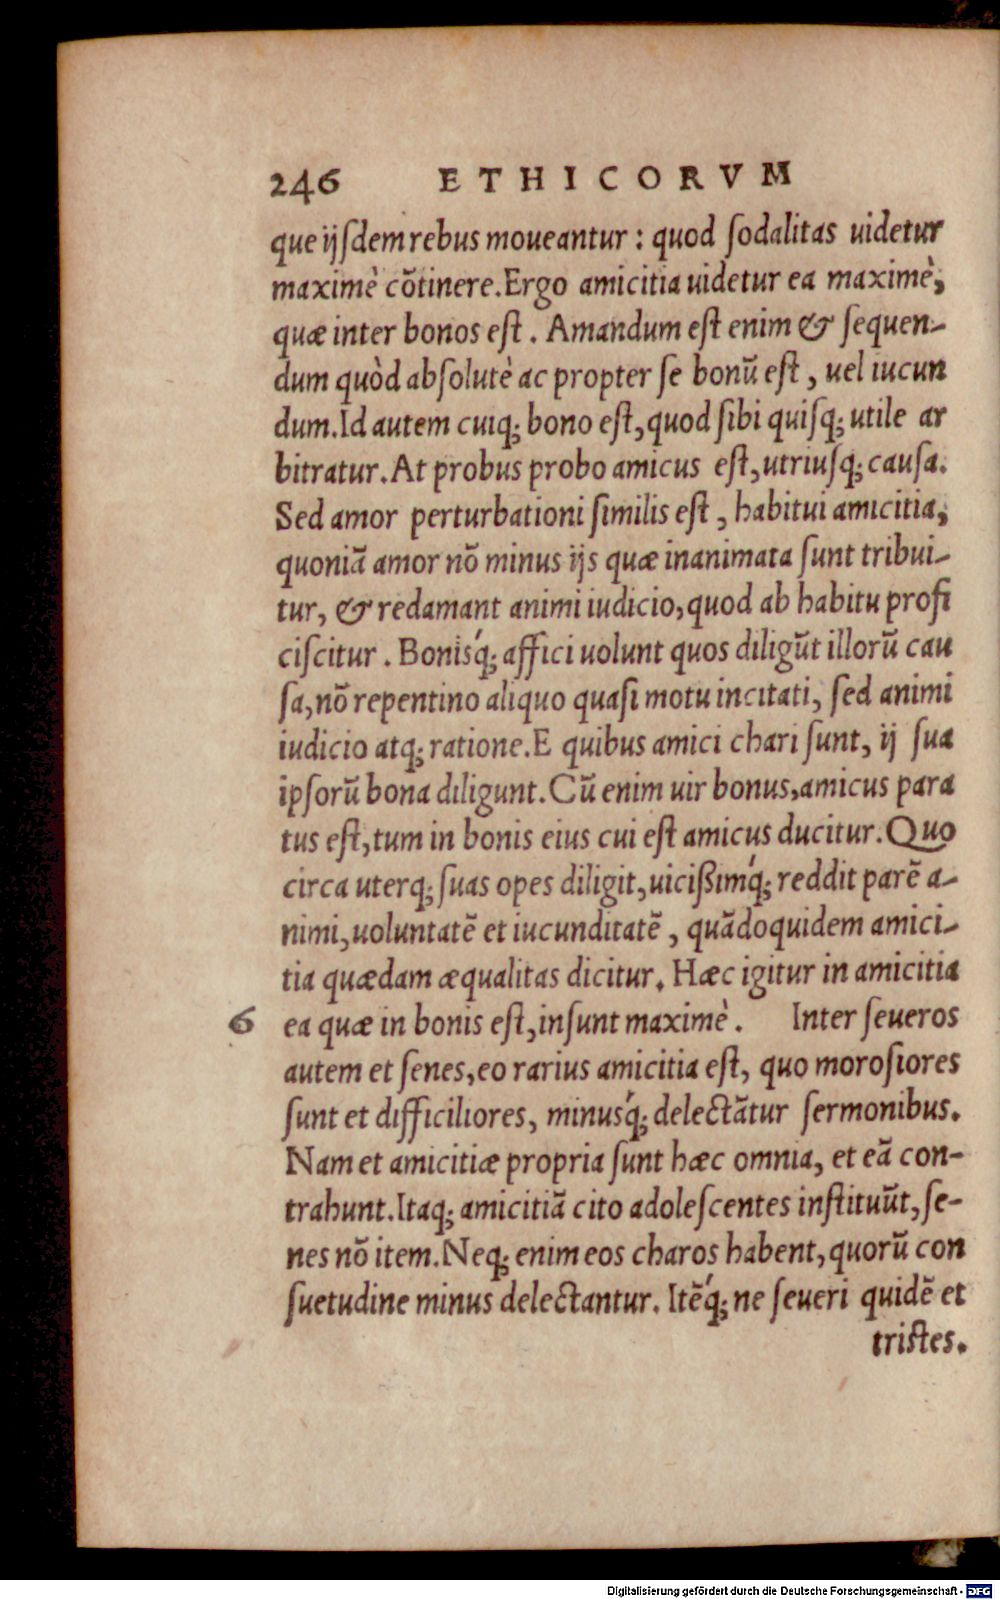 246 ETHICORVM
que ijſdem rebus moueantur : quod ſodalitas uidetur
maximè cõtinere. Ergo amicitia uidetur ea maximè,
quæ inter bonos eſt. Amandum eſt enim & ſequen-
dum quòd abſolutè ac propter ſe bonũ eſt, uel iucun
dum. Id autem cuiq; bono eſt, quod ſibi quiſq; utile ar
bitratur. At probus probo amicus eſt, utriuſq; cauſa.
Sed amor perturbationi ſimilis eſt, habitui amicitia,
quoniã amor nõ minus ijs quæ inanimata ſunt tribui-
tur, & redamant animi iudicio, quod ab habitu profi
ciſcitur. Bonisq́; affici uolunt quos diligũt illorũ cau
ſa, nõ repentino aliquo quaſi motu incitati, ſed animi
iudicio atq; ratione. E quibus amici chari ſunt, ij ſua
ipſorũ bona diligunt. Cũ enim uir bonus, amicus para
tus eſt, tum in bonis eius cui eſt amicus ducitur. Quo
circa uterq; ſuas opes diligit, uicißimq́; reddit parẽ a-
nimi, uoluntatẽ et iucunditatẽ, quãdoquidem amici-
tia quædam æqualitas dicitur. Hæc igitur in amicitia
6 ea quæ in bonis eſt, inſunt maximè. Inter ſeueros
autem et ſenes, eo rarius amicitia eſt, quo moroſiores
ſunt et difficiliores, minusq́; delectãtur ſermonibus.
Nam et amicitiæ propria ſunt hæc omnia, et eã con-
trahunt. Itaq; amicitiã cito adoleſcentes inſtituũt, ſe-
nes nõ item. Neq; enim eos charos habent, quorũ con
ſuetudine minus delectantur. Itẽq́; ne ſeueri quidẽ et
triſtes.
Digitalisierung gefördert durch die Deutsche Forschungsgemeinschaft - DFG